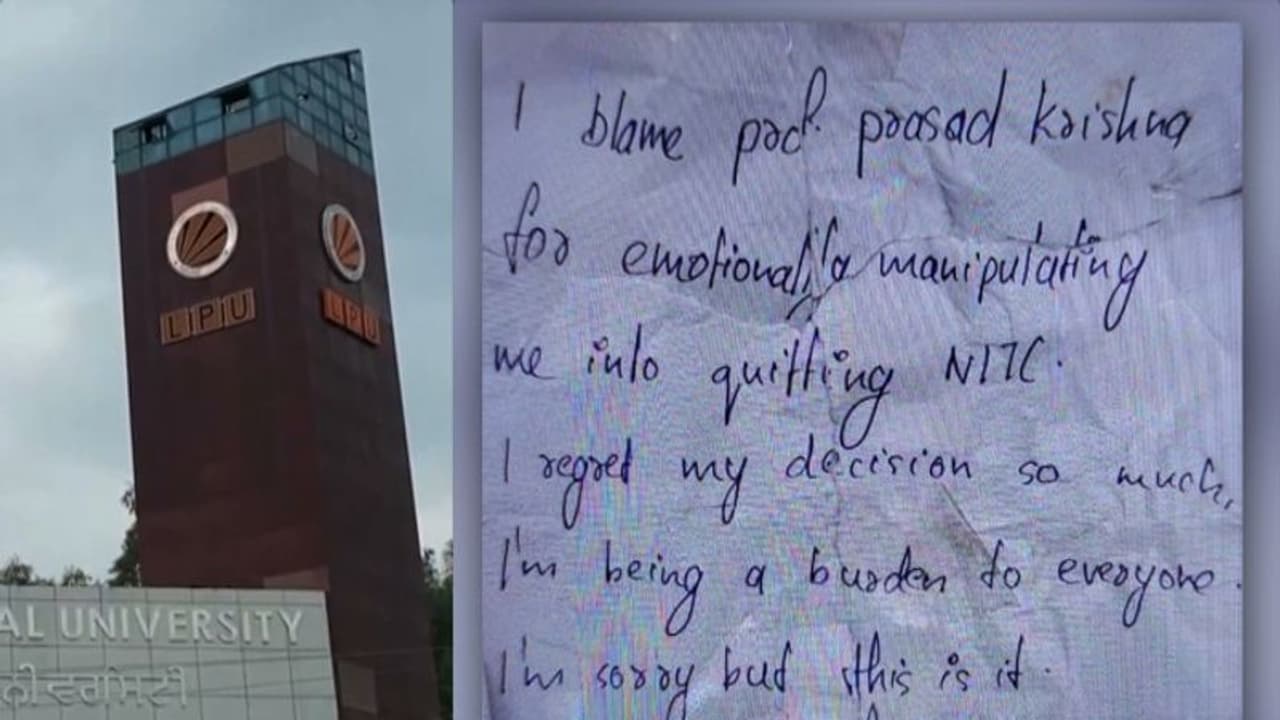 LPU
LPU
AL UNIVERSITY
I blame prof. prasad krishna
for emotionally manipulating
me into quitting NITC.
I regret my decision so much,
I'm being a burden to everyone.
I'm sorry but this is it.